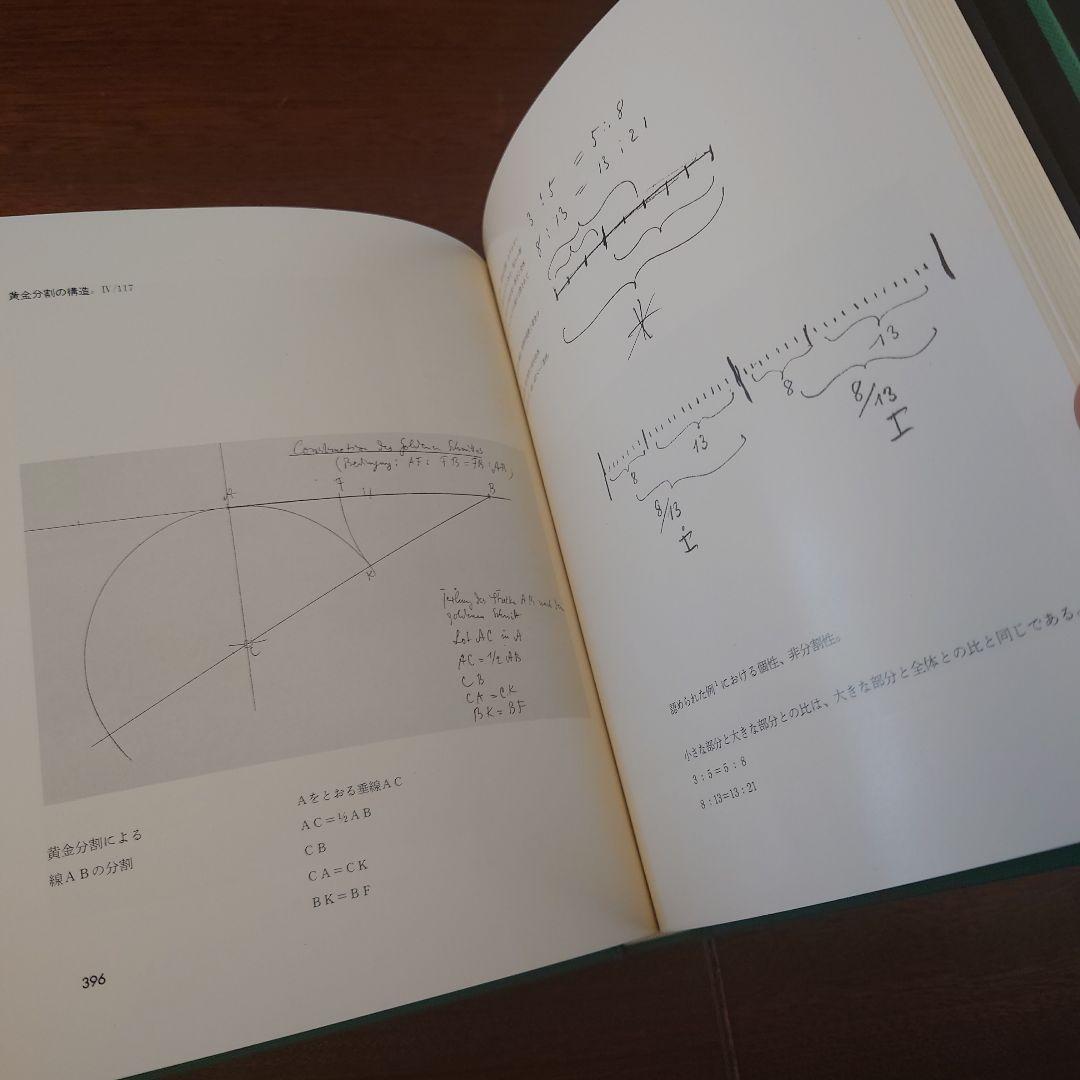 黄金分割の構造。IV/117
Construction des goldenen Schnittes
(Bedingung: AF : FB = FB : AB)
A
F
B
K
C
Teilung der Strecke AB nach dem
goldenen Schnitt
Lot AC in A
AC = 1/2 AB
CB
CA = CK
BK = BF
黄金分割による
線ABの分割
Aをとおる垂線AC
AC=½AB
CB
CA=CK
BK=BF
396
3 : 5 = 5 : 8
8 : 13 = 13 : 21
8
13
8/13
I
8
13
8/13
I
認められた例¹における個性、非分割性。
小さな部分と大きな部分との比は、大きな部分と全体との比と同じである。
3:5=5:8
8:13=13:21